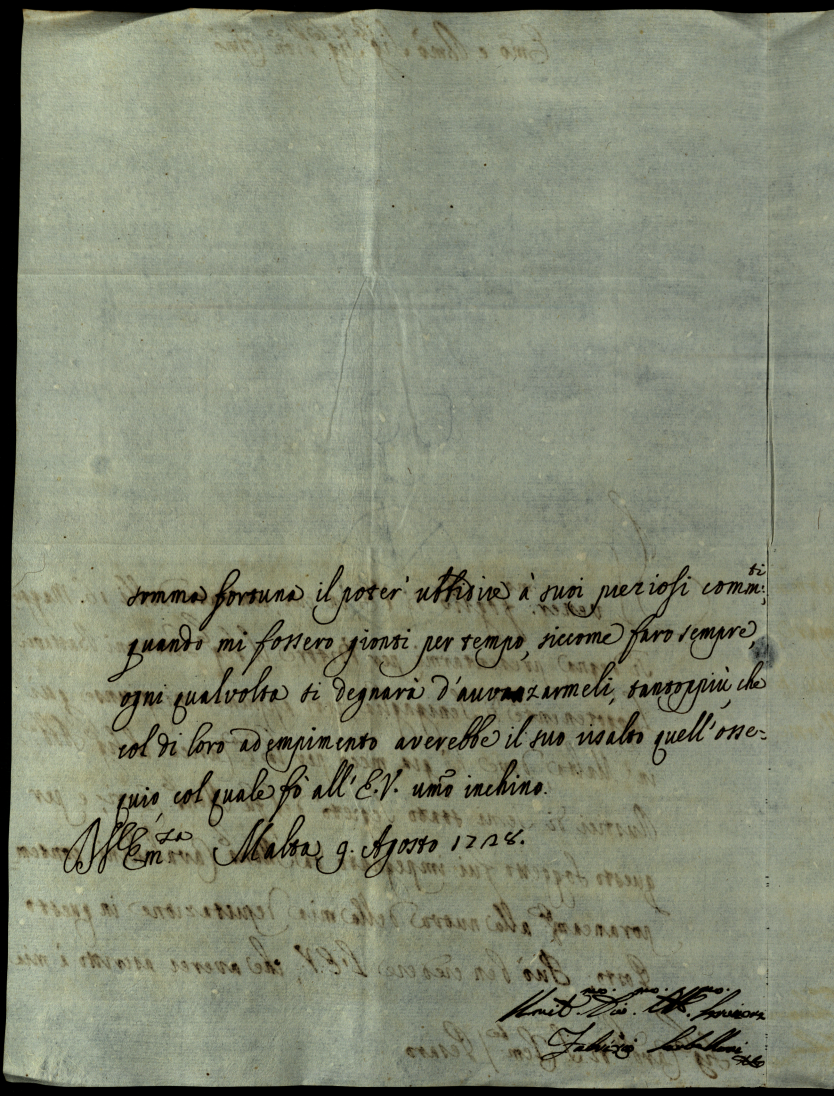 somma fortuna il poter' ubbidire à suoi preziosi comm:ti,
quando mi fossero gionti per tempo, siccome farò sempre,
ogni qualvolta si degnarà d'auvanzarmeli, tantoppiù, che
col di loro adempimento averebbe il suo risalto quell'osse-
quio col quale fò all'E.V. umo inchino.
Malta 9. Agosto 1728.
Fabrizio